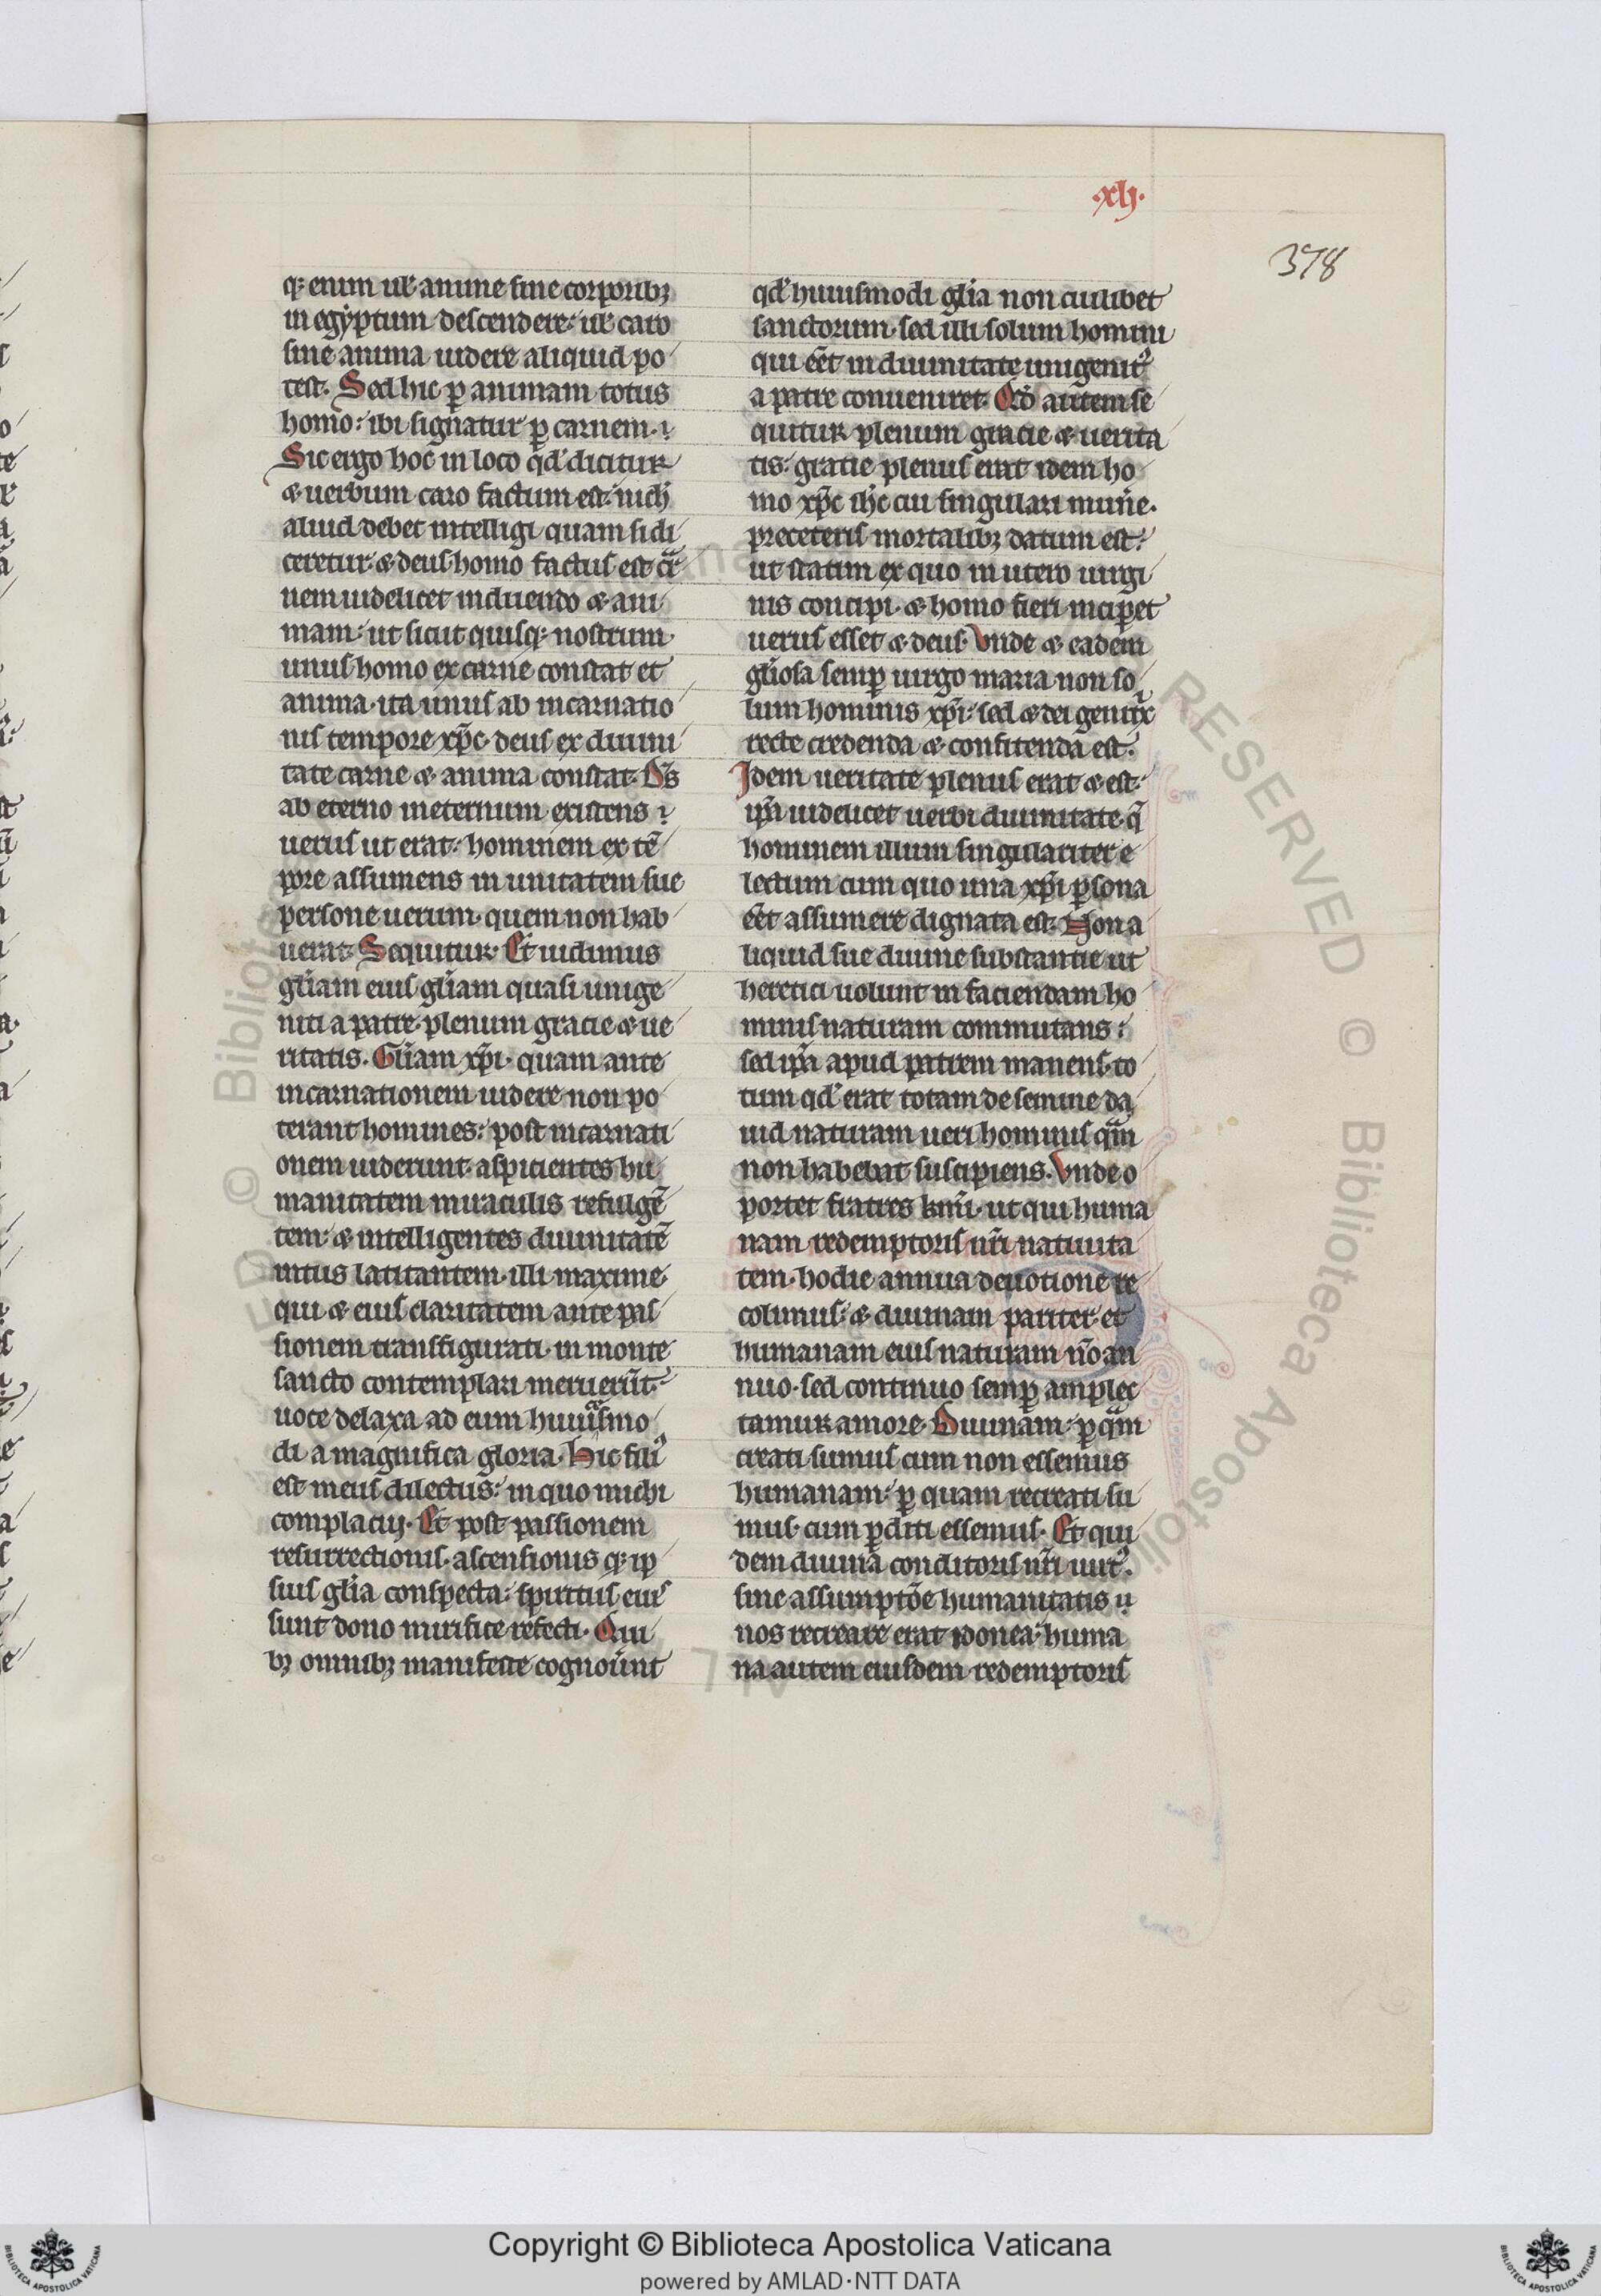 .xlj.
378
q; enim uł anime sine corporibꝫ
in egyptum descendere: uł caro
sine anima uidere aliquid po
test. Sed hic ꝑ animam totus
homo: ibi signatur ꝑ carnem.
Sic ergo hoc in loco qđ dicitur
⁊ uerbum caro factum est: nich
aliud debet intelligi quam si di
ceretur ⁊ deus homo factus est cr̄
nem uidelicet induendo ⁊ ani
mam: ut sicut quisq; nostrum
unus homo ex carne constat et
anima. ita unus ab incarnatio
nis tempore xp̄c. deus ex diuini
tate carne ⁊ anima constat. D̄s
ab eterno ineternum existens
uerus ut erat: hominem ex tē
pore assumens in unitatem sue
persone uerum. quem non hab
uerat. Sequitur. Et uidimus
głiam eius głiam quasi unige
niti a patre. plenum gracie ⁊ ue
ritatis. Głiam xp̄i. quam ante
incarnationem uidere non po
terant homines: post incarnati
onem uiderunt. aspicientes hu
manitatem miraculis refulgē
tem: ⁊ intelligentes diuinitatē
intus latitantem. illi maxime
qui ⁊ eius claritatem ante pas
sionem transfigurati. in monte
sancto contemplari meruer̄t.
uoce delaxa ad eum huiusmo
di a magnifica gloria. Hic fili⁹
est meus dilectus: in quo michi
complacuj. Et post passionem
resurrectionis. ascensionis q; ip
sius głia conspecta: spiritus eius
sunt dono mirifice refecti. Qui
bꝫ omnibꝫ manifeste cognouˀnt
qđ huiusmodi głia non cuilibet
sanctorum. sed illi solum homini
qui eēt in diuinitate unigenit⁹
a patre conueniret. Qđ autem se
quitur plenum gracie ⁊ uerita
tis: gratie plenus erat idem ho
mo xp̄c ih̄c cui singulari mun̄e.
preceteris mortalibꝫ datum est:
ut statim ex quo in utero uirgi
nis concipi. ⁊ homo fieri inciꝑet
uerus esset ⁊ deus. Vnde ⁊ eadem
gliosa semꝑ uirgo maria non so
lum hominis xp̄i: sed ⁊ dei genitx̄
recte credenda ⁊ confitenda est.
Idem ueritate plenus erat ⁊ est:
ip̄a uidelicet uerbi diuinitate. q̄
hominem illum singulariter e
lectum cum quo una xp̄i ꝑsona
eēt assumere dignata est. Non a
liquid sue diuine substantie ut
heretici uolunt in faciendam ho
minis naturam commutans:
sed ip̄a apud patrem manens. to
tum qđ erat totam de semine da
uid naturam ueri hominis qm̄
non habebat suscipiens. Vnde o
portet fratres kmi. ut qui huma
nam redemptoris nr̄i natiuita
tem. hodie annua deuotione re
colimus: ⁊ diuinam pariter et
humanam eius naturam nō an
nuo. sed continuo semꝑ amplec
tamur amore. Diuinam: ꝑ qm̄
creati sumus cum non essemus
humanam: ꝑ quam recreati su
mus. cum ꝑditi essemus. Et qui
dem diuina conditoris nr̄i uirt⁹.
sine assumptōe humanitatis
nos recreare erat idonea: huma
na autem eiusdem redemptoris
Copyright © Biblioteca Apostolica Vaticana
powered by AMLAD·NTT DATA